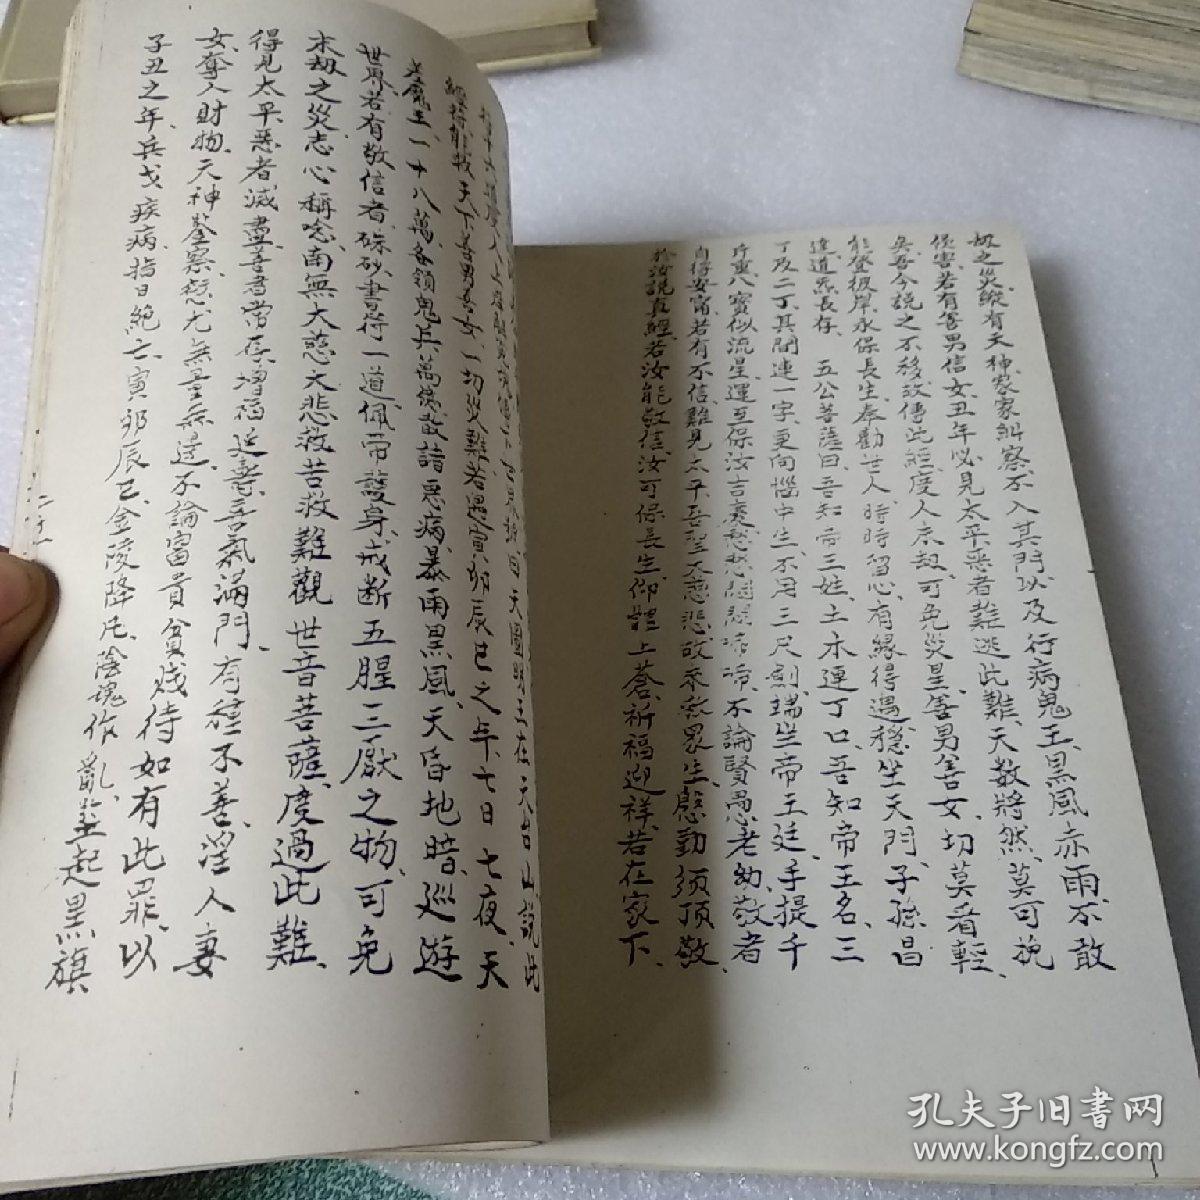 劫之災縱有天神家家糾察不入其門以及行病鬼王黑風赤雨不敢
侵害若有善男信女丑年必見太平惡者難逃此難天數將然莫可挽
矣吾今說之不移故傳此經度人末劫可免災星善男善女切莫看輕
能登彼岸永保長生奉勸世人時時留心有緣得遇穩坐天門子孫昌
達道點長存 五公菩薩曰吾知帝三姓土木連丁口吾知帝王名三
丁及二丁其間連一字更向惱中生不用三尺劍瑞坐帝王廷手提千
斤重八寶似流星運至保汝吉憂愁悶啼啼不論賢愚老幼敬者
自得安甯若有不信難見太平吾聖大慈悲故來救衆生慇勤須頂敬
於汝說真經若汝能敬信汝可保長生仰體上蒼祈福迎祥若在家下
六道度人上 世界 曰天圖明王在天台山說此
經若能救天下善男善女一切災難若遇寅卯辰巳之年七日七夜天
差魔王一十八萬各領鬼兵萬億散諸惡病暴雨黑風天昏地暗巡遊
世界若有敬信者硃砂書符一道佩帶護身戒斷五腥三厭之物可免
末劫之災志心稱唸南無大慈大悲救苦救難觀世音菩薩度過此難
得見太平惡者滅盡善者常存增福延壽喜氣滿門有種不善淫人妻
女奪人財物天神鑒察愆尤無量無邊不論富貴貧賤待如有此罪以
子丑之年兵戈疾病指日絕亡寅卯辰巳金陵降陰魂作亂豎起黑旗
孔夫子旧書网
www.kongfz.com